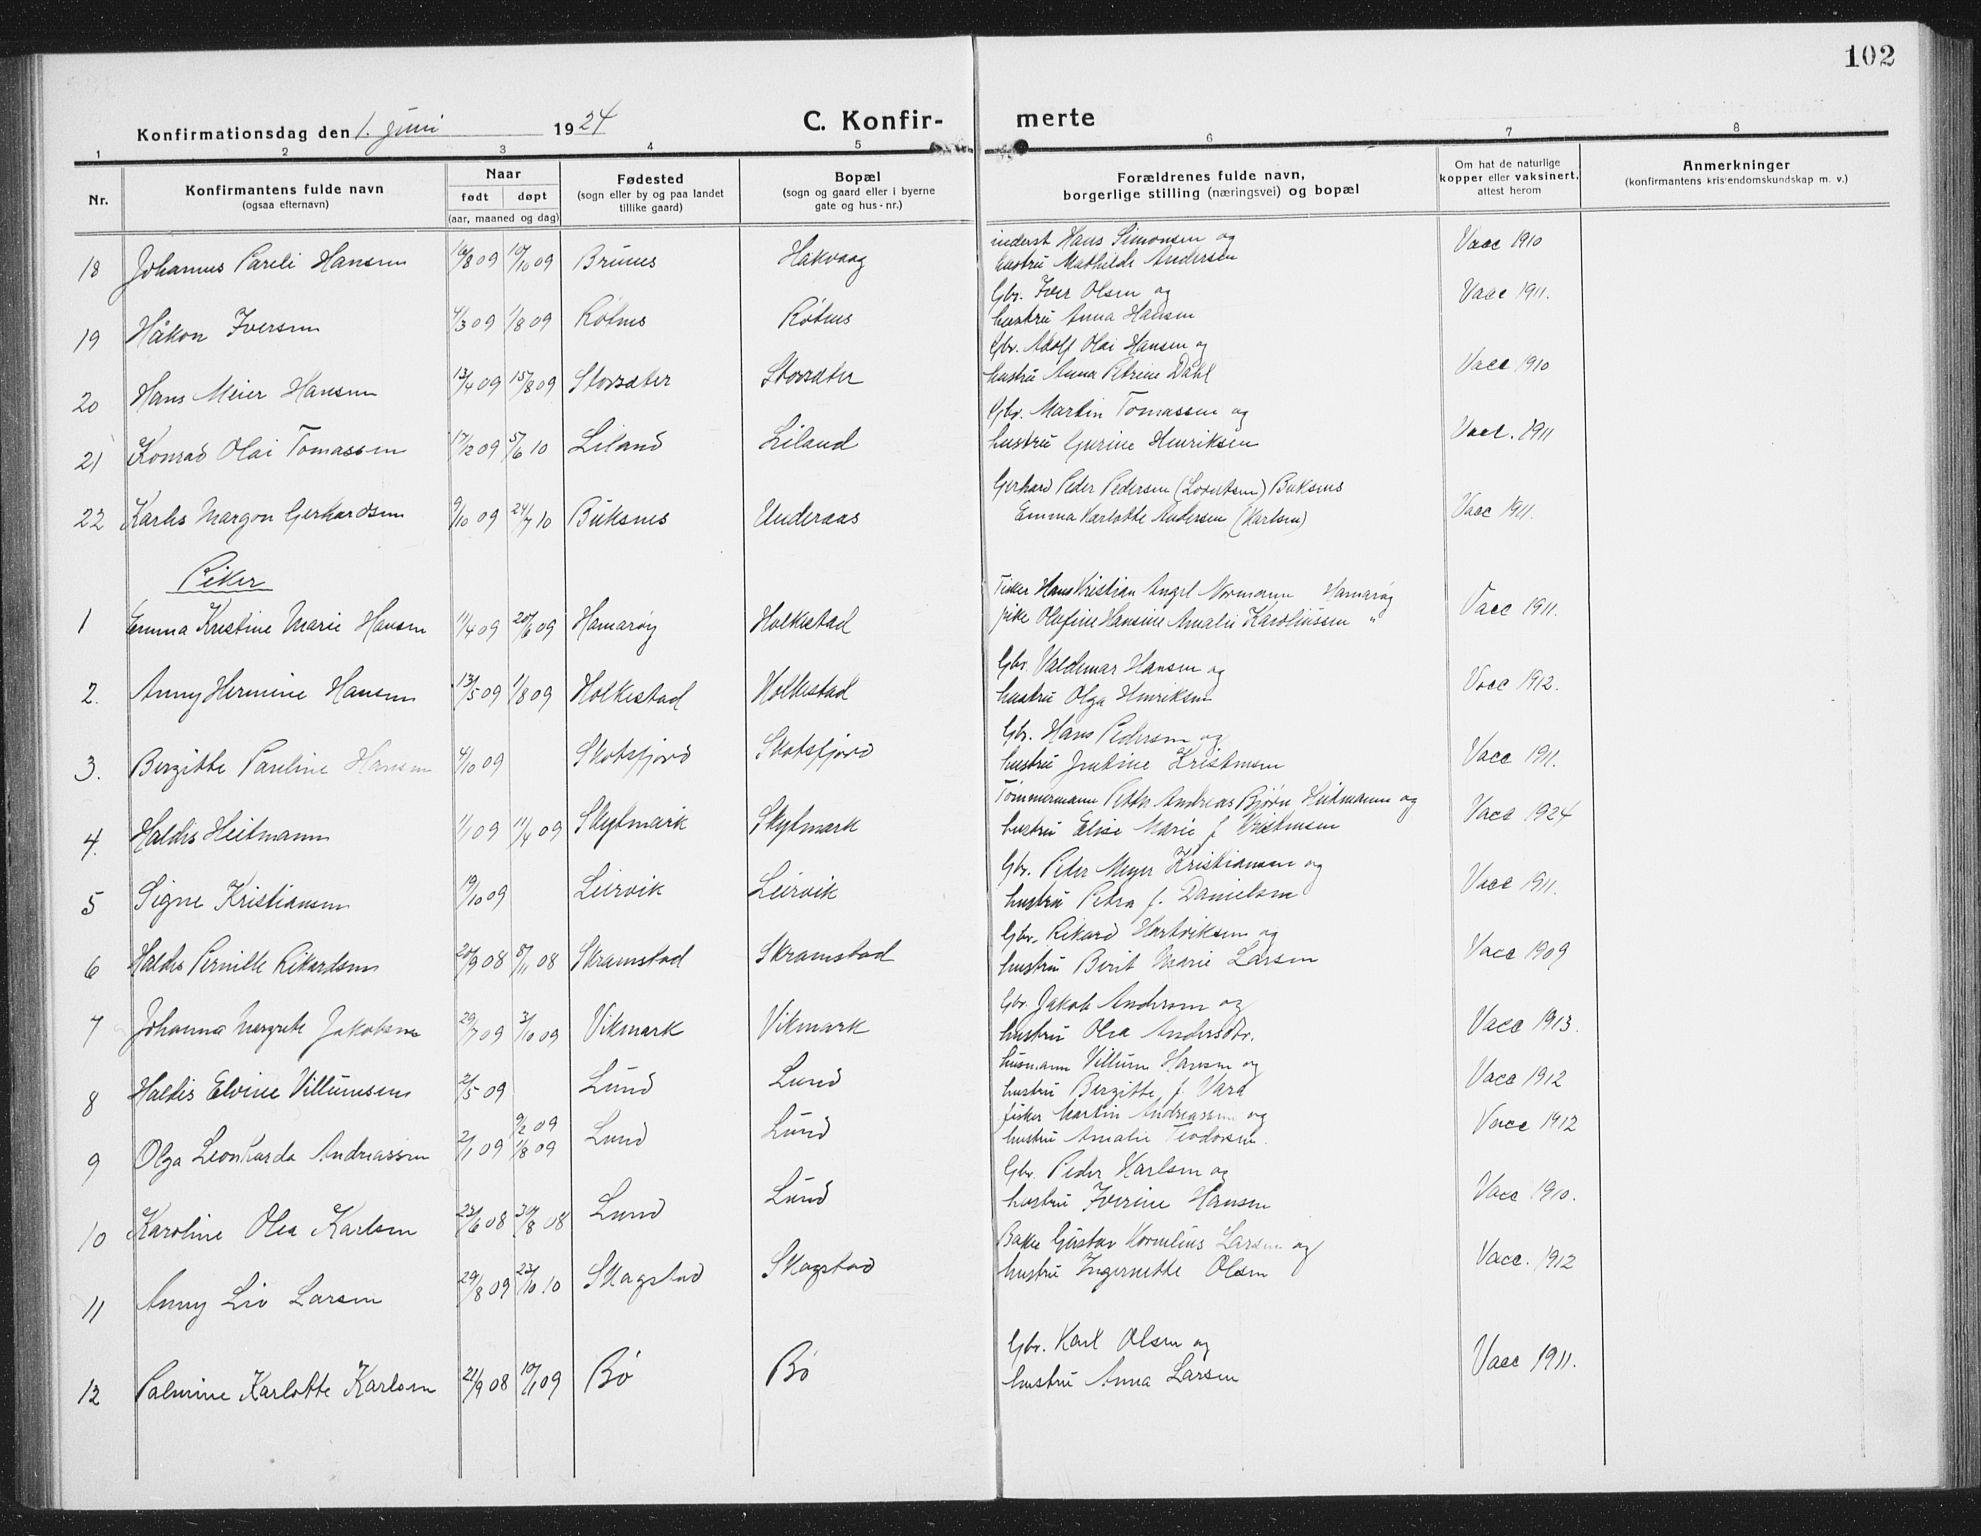 102
Konfirmationsdag den 1. juni 1924 C. Konfirmerte
1 2 3 4 5 6 7 8
Nr. Konfirmantens fulde navn (ogsaa efternavn) Naar født døpt (aar, maaned og dag) Fødested (sogn eller by og paa landet tillike gaard) Bopæl (sogn og gaard eller i byerne gate og hus-nr.) Forældrenes fulde navn, borgerlige stilling (næringsvei) og bopæl Om hat de naturlige kopper eller vaksinert, attest herom Anmerkninger (konfirmantens kristendomskundskap m. v.)
18 Johannes Pareli Hansen 16/8 09 10/10 09 Brunes Hakvaag inderst Hans Simonsen og Vacc 1910
hustru Mathilde Andersen
19 Håkon Iversen 4/3 09 1/8 09 Røtnes Røtnes Gbr. Iver Olsen og Vacc 1911.
hustru Anna Hansen
20 Hans Meier Hansen 13/4 09 15/8 09 Storsæter Storsæter Gbr. Adolf Olai Hansen og Vacc 1910
hustru Anna Petrine Dahl
21 Konrad Olai Tomassen 17/12 09 5/6 10 Liland Liland Gbr. Martin Tomassen og Vacc. 1911
hustru Gurine Henriksen
22 Karlis Margon Gerhardsen 9/10 09 24/7 10 Buksnes Underaas Gerhard Peder Pedersen (Lorentsen) Buksnes Vacc 1911.
Emma Karlotte Andersen (Karlsen)
Piker
1 Emma Kristine Marie Hansen 11/4 09 20/6 09 Hamarøy Holkestad Fisker Hans Kristian Angel Normann Hamarøy Vacc 1911.
pike Olufine Hansine Amalie Karoliussen "
2. Anny Hermine Hansen 13/5 09 1/8 09 Holkestad Holkestad Gbr. Valdemar Hansen og Vacc 1912.
hustru Olga Henriksen
3. Bergitte Pauline Hansen 4/10 09 Skotsfjord Skotsfjord Gbr. Hans Pedersen og Vacc 1911.
hustru Justine Kristensen
4. Haldis Heitmann 1/1 09 11/4 09 Skytmark Skytmark Tømmermann Petter Andreas Bjørn Heitmann og Vacc 1924
hustru Elise Marie f. Kristensen
5 Signe Kristiansen 19/10 09 Leirvik Leirvik Gbr. Peter Meyer Kristiansen og Vacc 1911.
hustru Petra f. Danielsen
6 Haldis Pernille Rikardsen 20/9 08 8/11 08 Skramstad Skramstad Gbr. Rikard Hartviksen og Vacc 1909
hustru Berit Marie Larsen
7 Johanna Margrete Jakobsen 29/7 09 3/10 09 Vikmark Vikmark Gbr. Jakob Andersen og Vacc 1913.
hustru Olea Andersdtr.
8 Haldis Elvine Villumsen 2/5 09 Lund Lund husmann Villum Hansen og Vacc 1912
hustru Bergitte f. Vard
9 Olga Leonharda Andreassen 2/1 09 9/2 09 1/8 09 Lund Lund fisker Martin Andreassen og Vacc 1912
hustru Amalie Teodorsen.
10 Karoline Olea Karlsen 23/6 08 30/8 08 Lund Lund Gbr. Peder Karlsen og Vacc 1910.
hustru Iverine Hansen
11 Anny Liv Larsen 29/8 09 23/10 10 Skagstad Skagstad Baker Gustav Kornelius Larsen og Vacc. 1912
hustru Ingernette Olsen
12 Palmine Karlotte Karlsen 21/9 08 10/1 09 Bø Bø Gbr. Karl Olsen og Vacc 1911.
hustru Anna Larsen